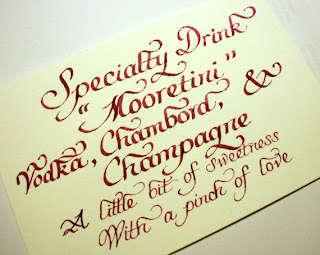 Specialty Drink
"Mooretini"
Vodka, Chambord, &
Champagne
A little bit of sweetness
With a pinch of love